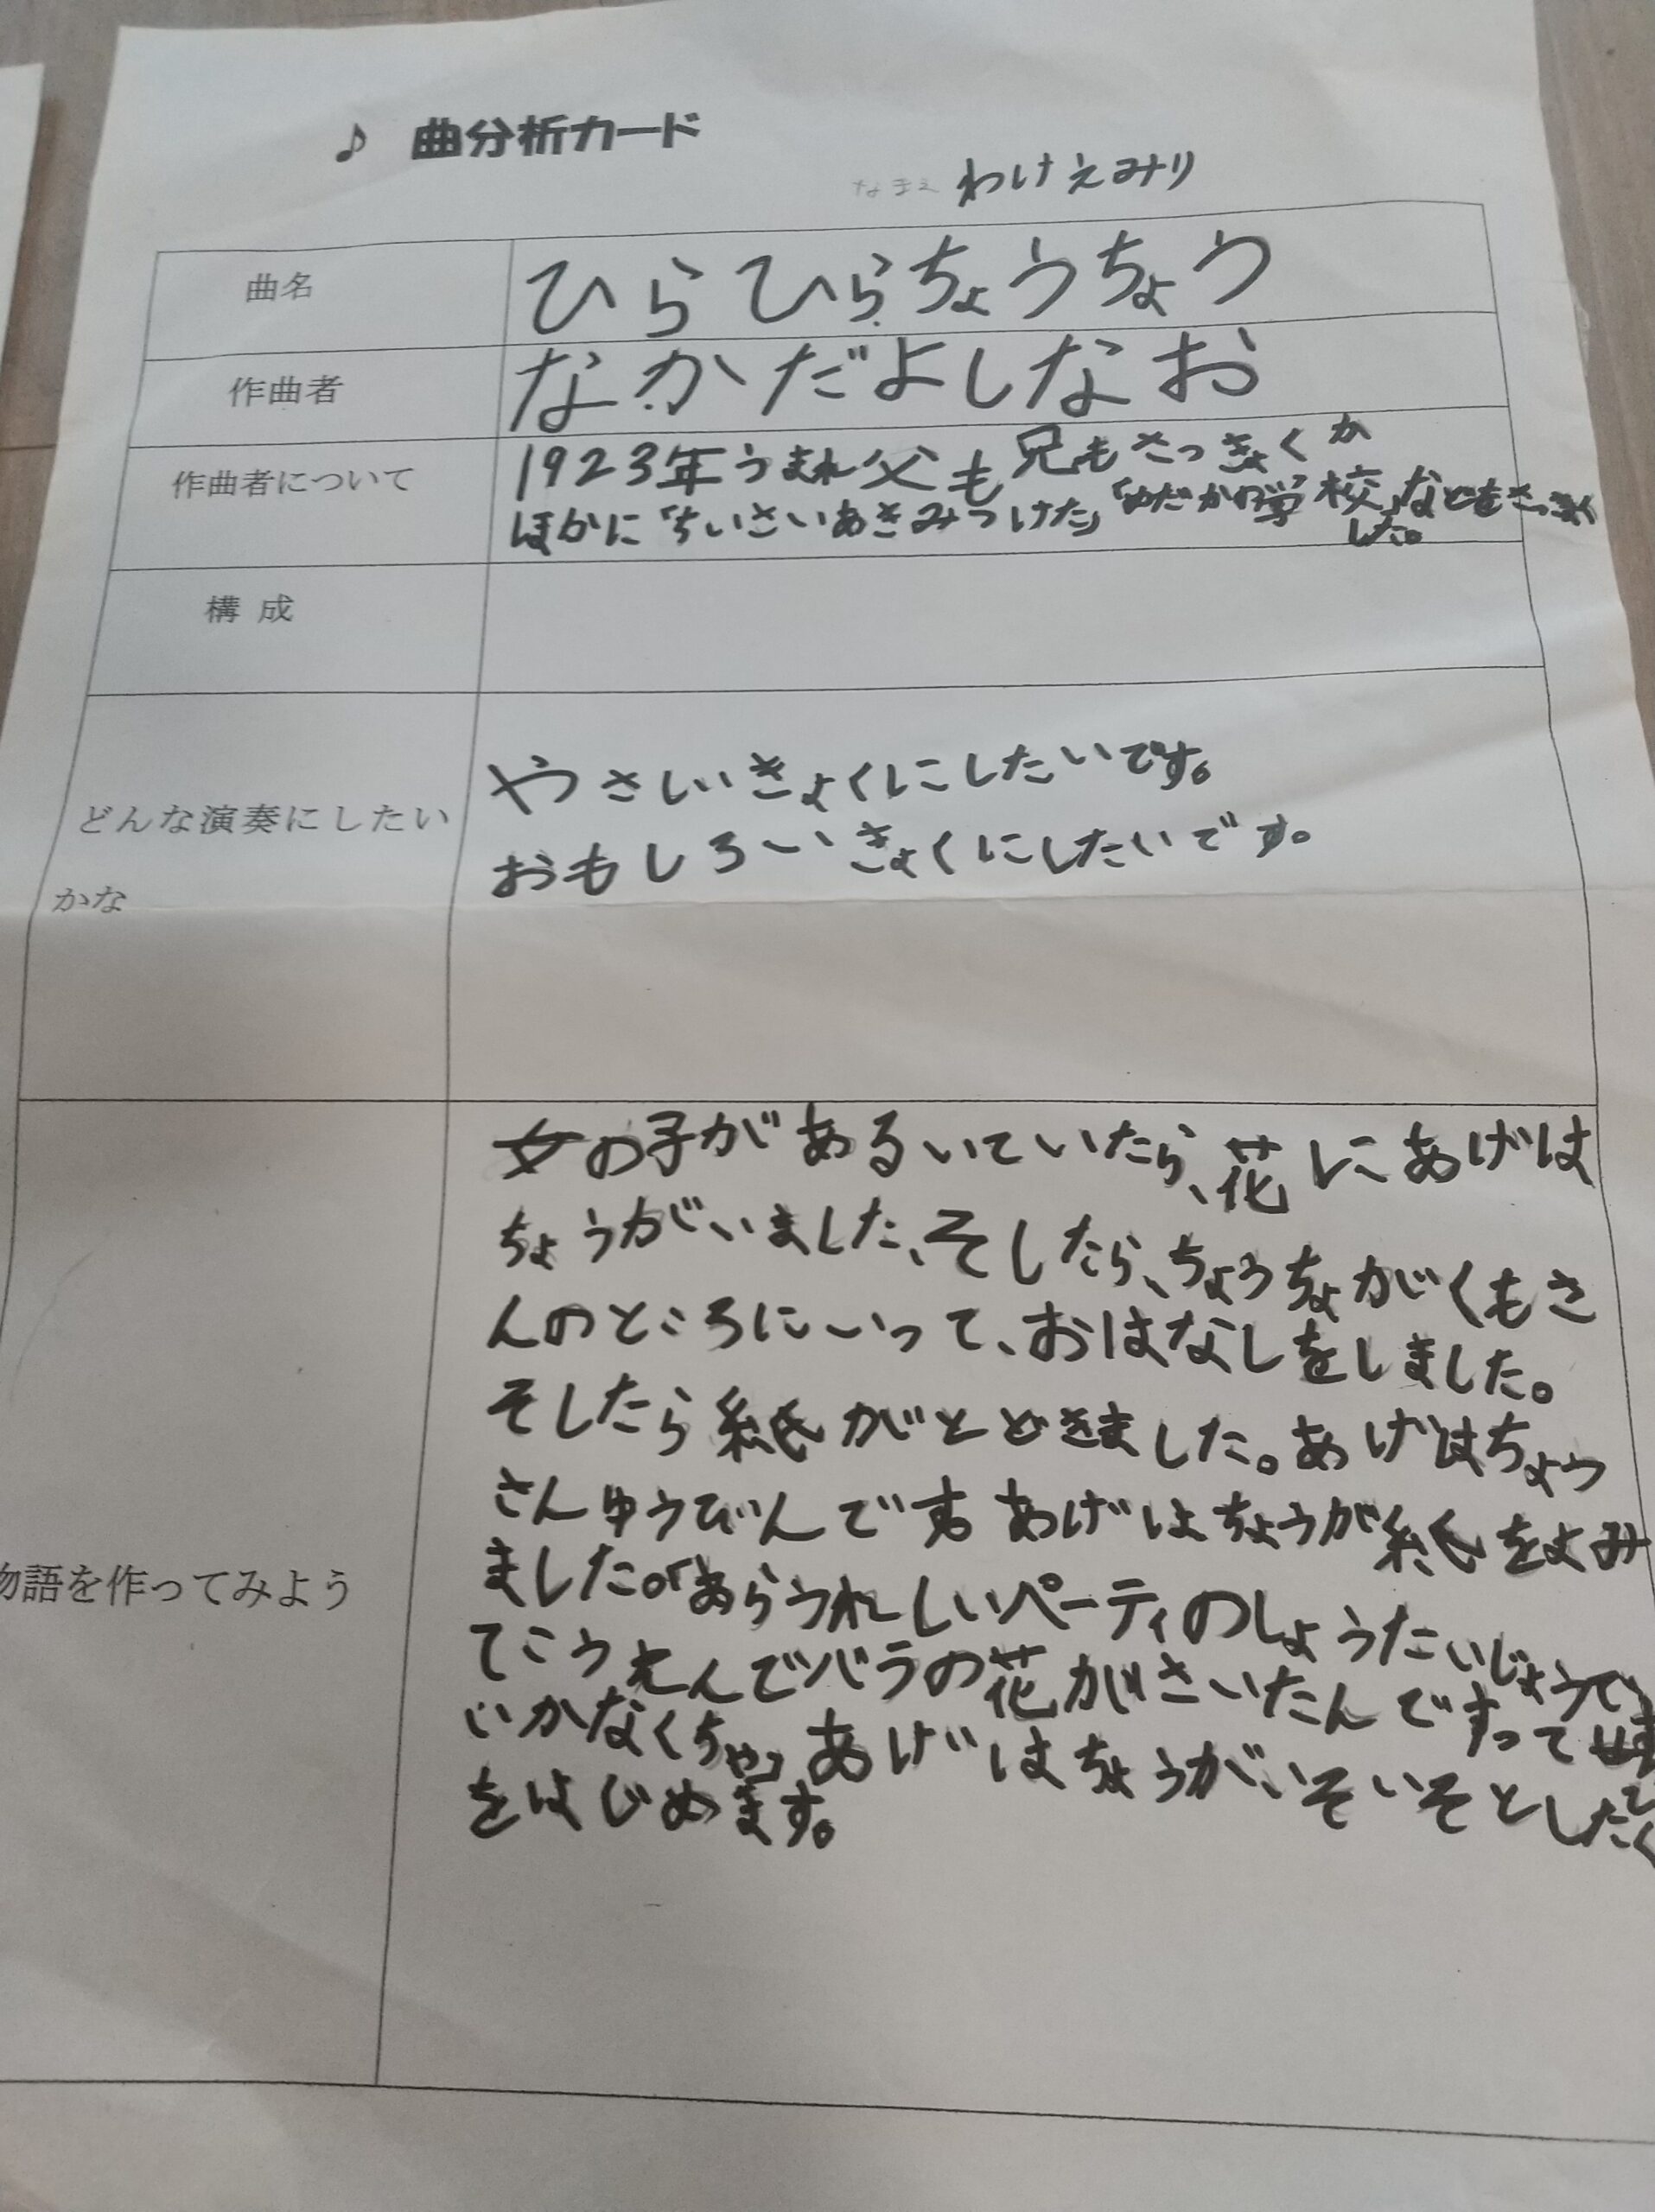 ♪ 曲分析カード
なまえ わけ えみり
曲名
ひらひらちょうちょう
作曲者
なかだよしなお
作曲者について
1923年うまれ父も兄もさっきょくか
ほかに「ちいさいあきみつけた」「めだかの学校」などをさっきょく
した。
構 成
どんな演奏にしたい
かな
やさしいきょくにしたいです。
おもしろいきょくにしたいです。
物語を作ってみよう
女の子があるいていたら、花にあげは
ちょうがいました、そしたら、ちょうちょがくもさ
んのところにいって、おはなしをしました。
そしたら紙がとどきました。あげはちょう
さんゆうびんです あげはちょうが紙をよみ
ました。「あらうれしいパーティのしょうたいじょうで、
てこうえんでバラの花がさいたんですって
いかなくちゃ」あげはちょうがいそいそとしたく
をはじめます。